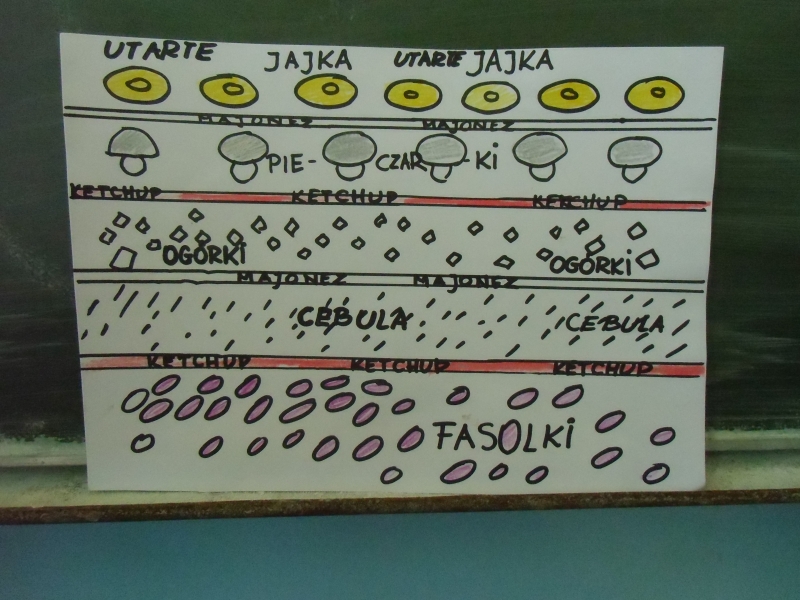 UTARTE JAJKA UTARTE JAJKA
MAJONEZ MAJONEZ
PIE- CZAR -KI
KETCHUP KETCHUP KEKCHUP
OGÓRKI OGÓRKI
MAJONEZ MAJONEZ
CEBULA CEBULA
KETCHUP KETCHUP KETCHUP
FASOLKI